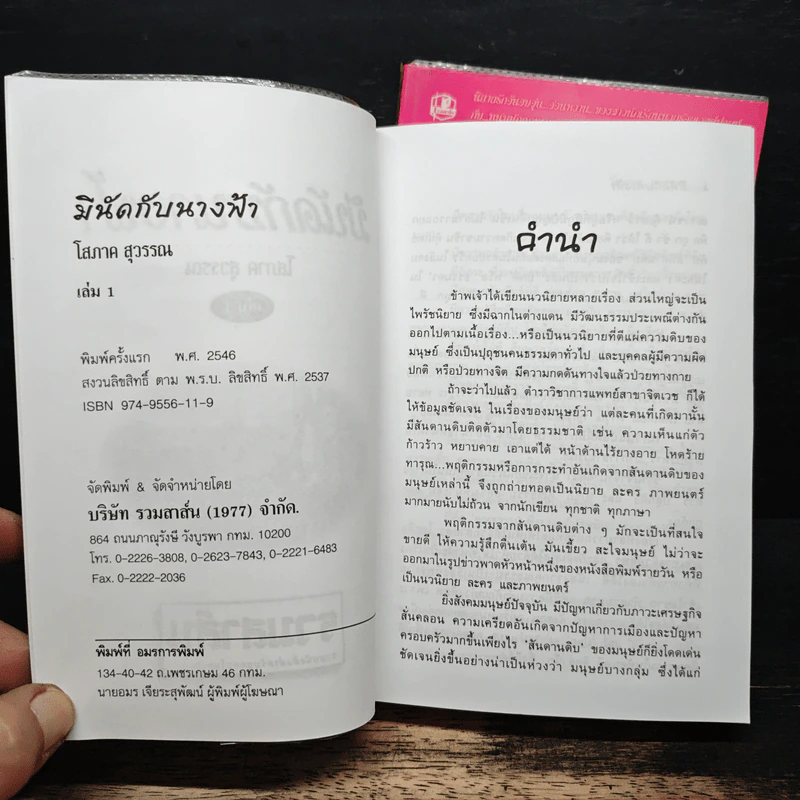 มีนัดกับนางฟ้า
โสภาค สุวรรณ
เล่ม 1
พิมพ์ครั้งแรก พ.ศ. 2546
สงวนลิขสิทธิ์ ตาม พ.ร.บ. ลิขสิทธิ์ พ.ศ. 2537
ISBN 974-9556-11-9
จัดพิมพ์ & จัดจำหน่ายโดย
บริษัท รวมสาส์น (1977) จำกัด.
864 ถนนภาณุรังษี วังบูรพา กทม. 10200
โทร. 0-2226-3808, 0-2623-7843, 0-2221-6483
Fax. 0-2222-2036
พิมพ์ที่ อมรการพิมพ์
134-40-42 ถ.เพชรเกษม 46 กทม.
นายอมร เจียระสุพัฒน์ ผู้พิมพ์ผู้โฆษณา
คำนำ
ข้าพเจ้าได้เขียนนวนิยายหลายเรื่อง ส่วนใหญ่จะเป็น
ไพรัชนิยาย ซึ่งมีฉากในต่างแดน มีวัฒนธรรมประเพณีต่างกัน
ออกไปตามเนื้อเรื่อง...หรือเป็นนวนิยายที่ตีแผ่ความดิบของ
มนุษย์ ซึ่งเป็นปุถุชนคนธรรมดาทั่วไป และบุคคลผู้มีความผิด
ปกติ หรือป่วยทางจิต มีความกดดันทางใจแล้วป่วยทางกาย
ถ้าจะว่าไปแล้ว ตำราวิชาการแพทย์สาขาจิตเวช ก็ได้
ให้ข้อมูลชัดเจน ในเรื่องของมนุษย์ว่า แต่ละคนที่เกิดมานั้น
มีสันดานดิบติดตัวมาโดยธรรมชาติ เช่น ความเห็นแก่ตัว
ก้าวร้าว หยาบคาย เอาแต่ได้ หน้าด้านไร้ยางอาย โหดร้าย
ทารุณ...พฤติกรรมหรือการกระทำอันเกิดจากสันดานดิบของ
มนุษย์เหล่านี้ จึงถูกถ่ายทอดเป็นนิยาย ละคร ภาพยนตร์
มากมายนับไม่ถ้วน จากนักเขียน ทุกชาติ ทุกภาษา
พฤติกรรมจากสันดานดิบต่าง ๆ มักจะเป็นที่สนใจ
ขายดี ให้ความรู้สึกตื่นเต้น มันเขี้ยว สะใจมนุษย์ ไม่ว่าจะ
ออกมาในรูปข่าวพาดหัวหน้าหนึ่งของหนังสือพิมพ์รายวัน หรือ
เป็นนวนิยาย ละคร และภาพยนตร์
ยิ่งสังคมมนุษย์ปัจจุบัน มีปัญหาเกี่ยวกับภาวะเศรษฐกิจ
สั่นคลอน ความเครียดอันเกิดจากปัญหาการเมืองและปัญหา
ครอบครัวมากขึ้นเพียงไร 'สันดานดิบ' ของมนุษย์ก็ยิ่งโดดเด่น
ชัดเจนยิ่งขึ้นอย่างน่าเป็นห่วงว่า มนุษย์บางกลุ่ม ซึ่งได้แก่